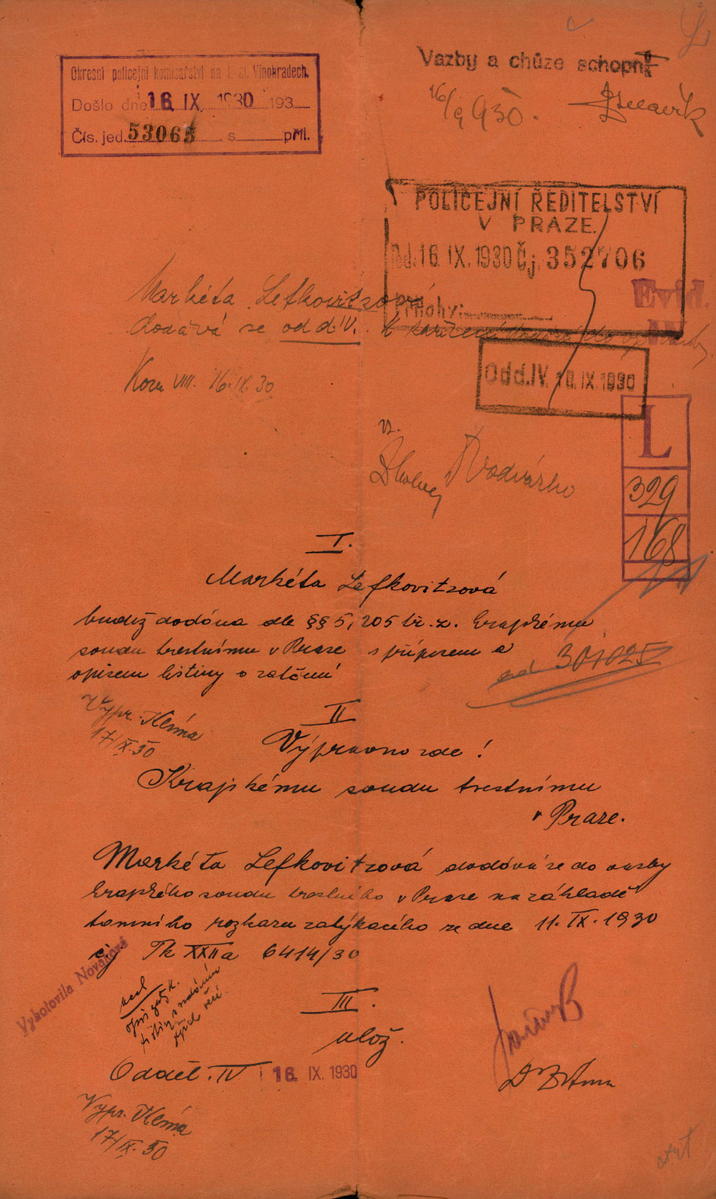 Okresní policejní komisařství na Král. Vinohradech.
Došlo dne 16 IX. 1930 193
Čís. jed. 53065 s příl.
Vazby a chůze schopn
16/9 930.
POLICEJNÍ ŘEDITELSTVÍ
V PRAZE.
Od. 16. IX. 1930 Čj. 352706
Přílohy:
Evid.
Markéta Lefkovitzová
dodává se od d. IV.
Kom VIII. 16.IX.30
Odd. IV. 16. IX. 1930
L
329
168
I.
Markéta Lefkovitzová
budiž dodána dle §§ 5, 205 tr. z. krajskému
soudu trestnímu v Praze s přípisem a
opisem listiny o zatčení
ad 301025
Vypr. Klíma
17/IX. 30
II
Výpravno zde!
Krajskému soudu trestnímu
v Praze.
Markéta Lefkovitzová dodává se do vazby
krajského soudu trestního v Praze na základě
tamního rozkazu zatýkacího ze dne 11. IX. 1930
čj Tk XXIIa 6414/30
Vyhotovila Nováková
III.
ulož.
Odděl. IV 16. IX. 1930
Vypr. Klíma
17/IX. 30